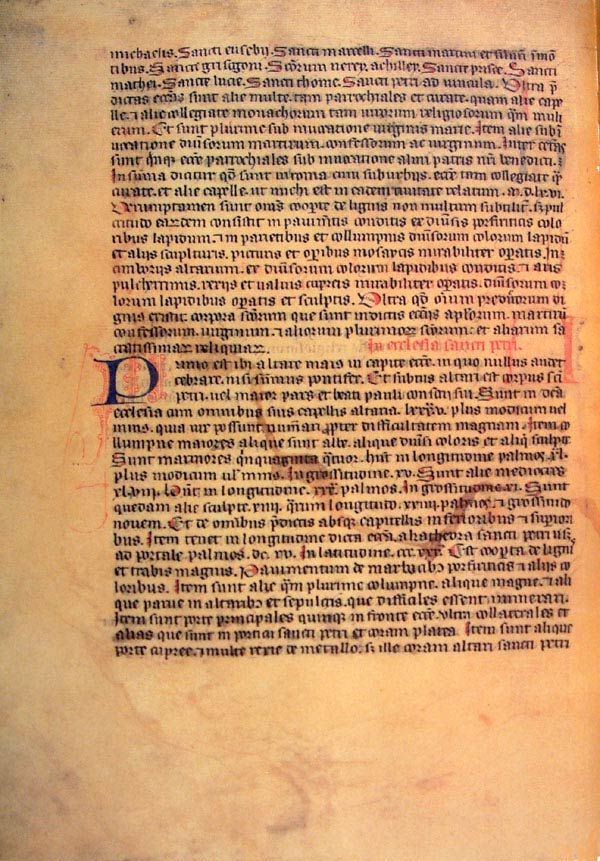 michaelis. Sancti eusebij. Sancti marcelli. Sancti martini et
tibus. Sancti grisogoni. Sctorum nerey. achiller. Sancte prisce. Sancti
mathei. Sancte lucie. Sancti thome. Sancti petri ad vincula. Vltra p̄
dictas eccās sunt alie multe. tam parrochiales et curate. quam alie cape
lle. ⁊ alie collegiate monachorum tam virorum religiosorum qm̄ muli
erum. Et sunt plurime sub inuocatione virginis marie. Item alie sub ī
uocatione diuisorum martirum. confessorum ac virginum. Inter ceteras
sunt qnq̄ ecc̄e parrochiales sub inuocatione almi patris nr̄i benedicti. ⁊
In sūma dicitur qd̄ sunt in roma cum suburbijs. ecc̄e tam collegiate q̄
curate. et alie capelle. ut michi est in eadem ciuitate relatum. m. d. lx. vi.
Verumptamen sunt om̄s coopte de lignis non multum subtilit̄. s; pul
critudo earumdem consistit in pauimētis conditis ex diuisis porfiriticis colo
ribus lapidum. ⁊ in parietibus et collumpnis diuisorum colorum lapidū
et alijs sculpturis. picturis et opībus mosaycis mirabiliter opatis. In
cimborijs altarium. ex diuisorum colorum lapidibus conditis ⁊ alijs
pulcherrimis. rexijs et valuis cupreis mirabiliter opatis. diuisorum co
lorum lapidibus opatis et sculptis. Vltra qd̄ omium
gnis existit corpora sctorum que sunt in dictis eccijs apl̄orum. martirū
confessorum. virginum. ⁊ aliorum plurimorum sctorum: et aliarum sa
cratissimarum reliquiarum. In ecclesia sancti petri.
Primo est ibi altare maius in capite ecc̄e. in quo nullus audet
celebrare. nisi sūmus pontifex. Et subtus altari est corpus sci
petri. vel maior pars et beati pauli consortij sui. Sunt in dc̄a
ecclesia cum omnibus suis capellis altaria. lxxxv. plus modicum uel
minus. quia vix possunt nūmari ppter difficultatem magnam. Item co
llumpne maiores alique sunt albe. alique diuisi coloris et aliq̄ sculpte
Sunt marmores qnquaginta qtuor. hn̄t in longitudine palmos. xl.
plus modicum ul̄ minus. In grossitudine. xv. Sunt alie mediocres
xl. viij. hn̄t in longitudine. xxx. palmos. In grossitudine. xi. Sunt
quedam alie sculpte. viij. qrum longitudo. xxiiij. palmos. ⁊ grossitudo
nouem. Et de omībus pdictis absq; capitellis inferioribus ⁊ supiori
bus. Item tenet in longitudine dicta ecc̄a. a kathedra sancti petri usq;
ad portale palmos. dc. xv. In latitudine. ccc. xxx. Est coopta de lignis
et trabis magnis. Pauimentum de marboribus porfiriticis ⁊ alijs co
loribus. Item sunt alie qm̄ plurime columpne. alique magne. ⁊ ali
que parue in altaribus et sepulcris. que difficiles essent numerari.
Item sunt porte principales quinque in fronte ecc̄e. vltra collaterales et
alias que sunt in porticu sancti petri et coram platea. Item sunt alique
porte cupree. ⁊ multe rexie de metallo. s; ille coram altari sancti petri